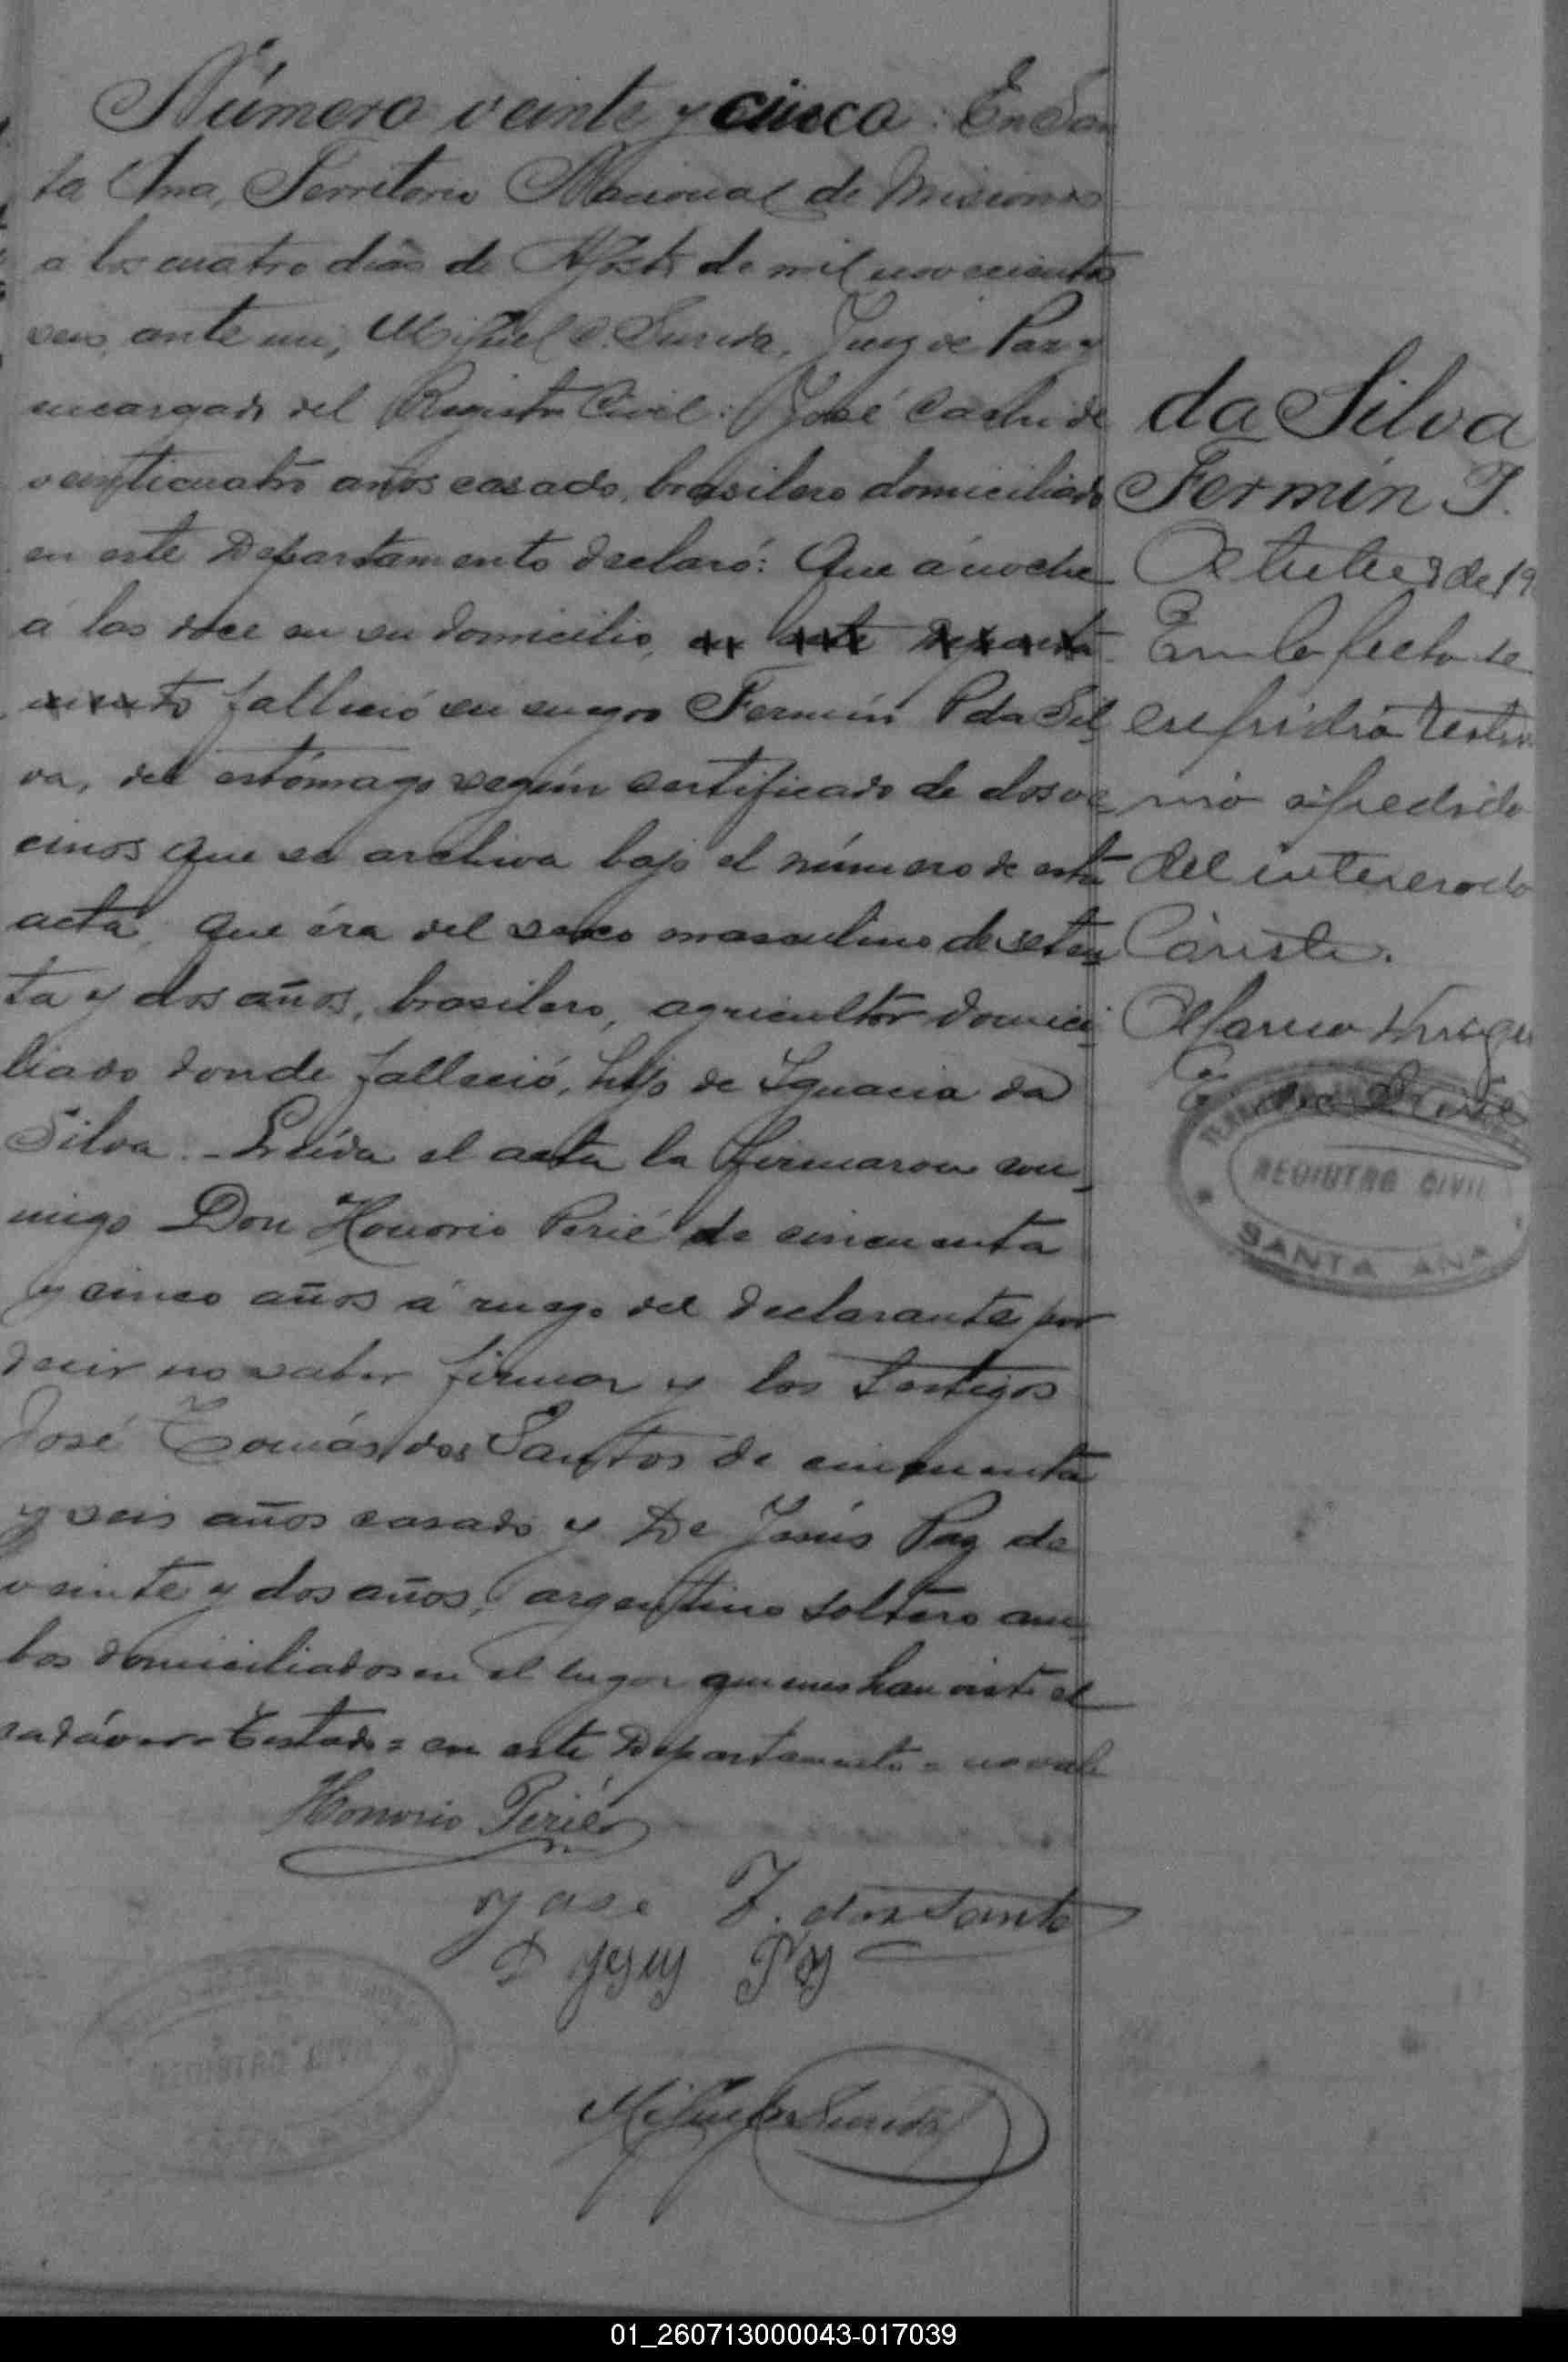 Número veinte y cinco: En San
ta Ana, Territorio Nacional de Misiones
a los cuatro dias de Agosto de mil novecientos
seis, ante mi, Miguel Juez de Paz y
encargado del Registro Civil: José
veinticuatro años casado, brasilero domiciliado
en este Departamento declaró: Que anoche
á las doce en su domicilio, en este Departa
mento falleció su suegro Fermín P da Sil
va, del estómago según certificado de dos ve
cinos que se archiva bajo el número de esta
acta, que éra del sexo masculino de seten
ta y dos años, brasilero, agricultor domici
liado donde falleció, hijo de Ignacia da
Silva. - Leída el acta la firmaron con
migo Don Honorio Perié de cincuenta
y cinco años á ruego del declarante por
decir no saber firmar y los testigos
José Tomás dos Santos de cincuenta
y seis años casado y De Jesús Paz de
veinte y dos años, argentino soltero am
bos domiciliados en el lugar quienes han visto el
cadáver - Testado = en este Departamento = no vale
Honorio Perié
José T. dos Santo
D Jesus
Miguel
da Silva
Fermín
de 19
En la fecha se
testimo
nio a pedido
del interesado
REGISTRO CIVIL
SANTA ANA
01_260713000043-017039